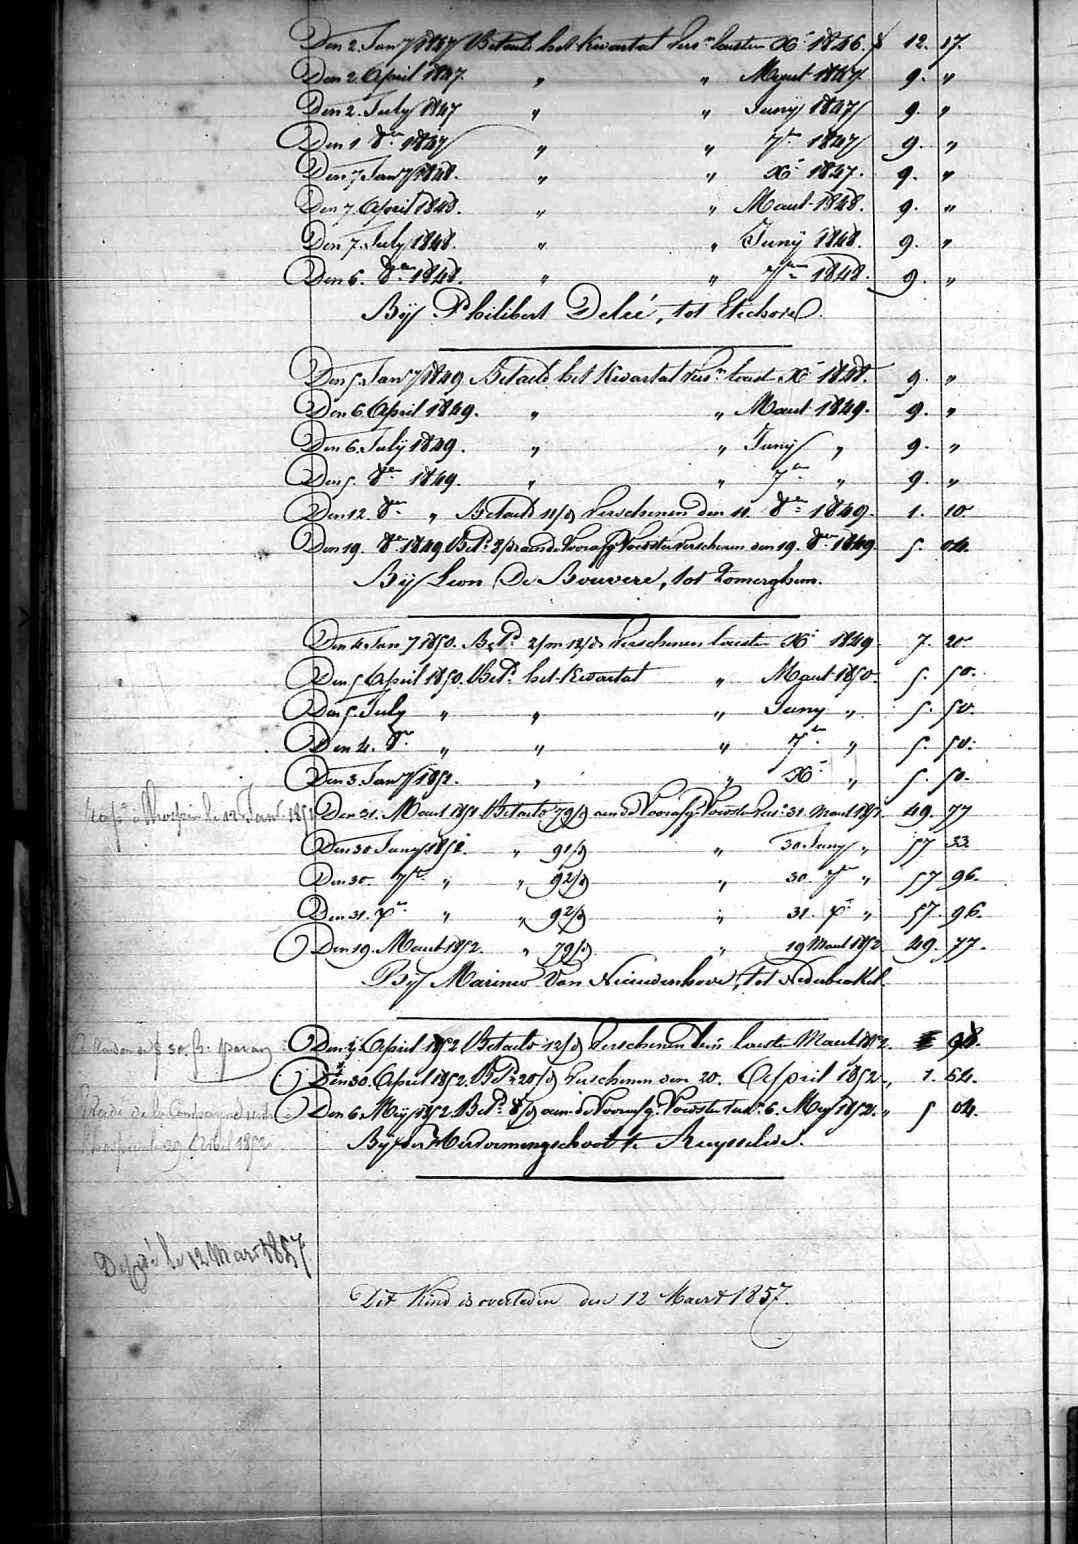 Den 2. Jan.y 1847 Betaald het Kwartaal vers.n laesten Xb. 1846. f 12. 17.
Den 2. April 1847. „ „ Maart 1847. 9. „
Den 2. July 1847 „ „ Juny 1847 9. „
Den 1. 8ber 1847 „ „ 7ber 1847 9. „
Den 7 Jan.y 1848. „ „ Xb. 1847. 9. „
Den 7. April 1848. „ „ Maart 1848. 9. „
Den 7. July 1848. „ „ Juny 1848. 9. „
Den 6. 8ber 1848. „ „ 7ber 1848. 9. „
Bij Philibert Delié, tot
Den 5. Jan.y 1849 Betaald het Kwartaal vers.n laest. Xb. 1848. 9. „
Den 6 April 1849. „ „ Maart 1849. 9. „
Den 6. July 1849. „ „ Juny „ 9. „
Den 5. 8ber 1849. „ „ 7ber „ 9. „
Den 12. 8ber „ Betaald 11/d Verschenen den 11. 8ber 1849. 1. 10
Den 19. 8ber 1849 Bet.d 8/d aan de Voorafg. Voedster verschenen den 19. 8ber 1849. 5. 04.
Bij Leon De Bouvere, tot Somerghem.
Den 4. Jan.y 1850. Bet.d 2/m 12/d Verschenen laesten Xb. 1849. 7. 20
Den 5. April 1850. Bet.d het Kwartaal „ Maart 1850. 5. 50.
Den 5. July „ „ „ Juny „ 5. 50.
Den 4. 8b. „ „ „ 7ber „ 5. 50.
Den 3. Jan.y 1851. „ „ Xb. „ 5. 50.
à l'hospice le 12 Janv. 1851
Den 31. Maart 1851 Betaald 79/d aan de Voorafg. Voedster vers. 31. Maart 1851. 49. 77
Den 30 Juny 1851. „ 91/d „ 30 Juny „ 57 33
Den 30. 7ber „ „ 92/d „ 30. 7ber „ 57 96.
Den 31. Xb. „ „ 92/d „ 31. Xb. „ 57. 96.
Den 19. Maart 1852. „ 79/d „ 19 Maart 1852 49. 77.
Bij Marinus Van Nieuwenhove, tot Nederbrakel.
Den 2. April 1852 Betaald 12/d Verschenen laesten Maart 1852. „ 98.
Den 30. April 1852. Bet.d 20/d Verschenen den 20. April 1852 „ 1. 64.
Den 6. Mey 1852. Bet.d 8/d aan de Voorafg. Voedster 6. Mey 1852. „ 5 04.
l'hospice le 29 Avril 1852
Bij der Hervormingschool te Ruysselede.
Décédé le 12 Mars 1857.
Dit Kind is overleden den 12 Maert 1857.